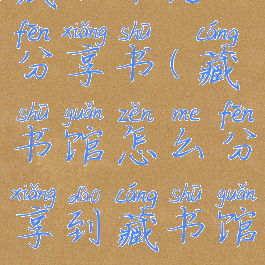 fēn xiǎng shū cáng
分享书(藏
shū guǎn zěn me fēn
书馆怎么分
xiǎng dào cáng shū guǎn
享到藏书馆